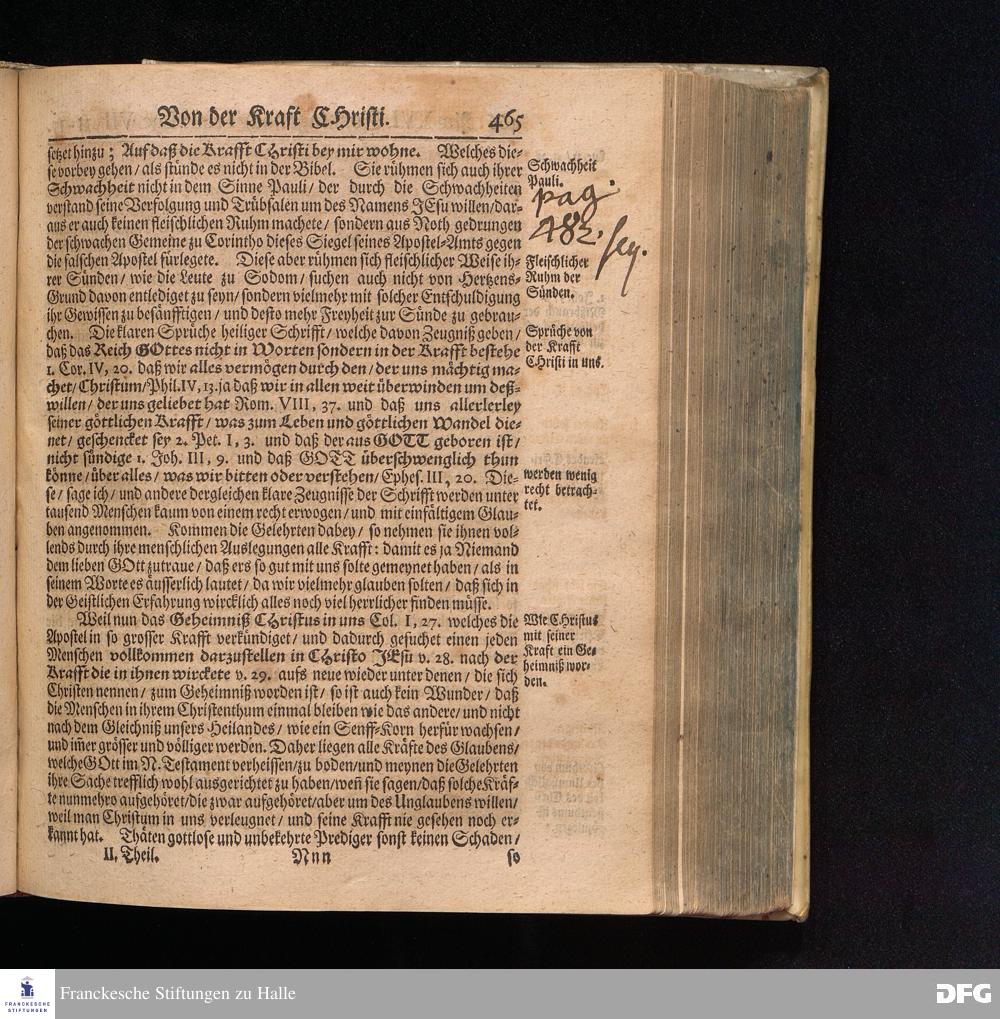 Von der Kraft CHristi. 465
setzet hinzu; Auf daß die Krafft CHristi bey mir wohne. Welches die-
se vorbey gehen/ als stünde es nicht in der Bibel. Sie rühmen sich auch ihrer
Schwachheit nicht in dem Sinne Pauli/ der durch die Schwachheiten
verstand seine Verfolgung und Trübsalen um des Namens JEsu willen/dar-
aus er auch keinen fleischlichen Ruhm machete/ sondern aus Noth gedrungen
der schwachen Gemeine zu Corintho dieses Siegel seines Apostel-Amts gegen
die falschen Apostel fürlegete. Diese aber rühmen sich fleischlicher Weise ih-
rer Sünden/ wie die Leute zu Sodom/ suchen auch nicht von Hertzens-
Grund davon entlediget zu seyn/ sondern vielmehr mit solcher Entschuldigung
ihr Gewissen zu besänfftigen/ und desto mehr Freyheit zur Sünde zu gebrau-
chen. Die klaren Sprüche heiliger Schrifft/ welche davon Zeugniß geben/
daß das Reich GOttes nicht in Worten sondern in der Krafft bestehe
1. Cor. IV, 20. daß wir alles vermögen durch den/ der uns mächtig ma-
chet/ Christum/Phil. IV, 13. ja daß wir in allen weit überwinden um deß-
willen/ der uns geliebet hat Rom. VIII, 37. und daß uns allerlerley
seiner göttlichen Krafft/ was zum Leben und göttlichen Wandel die-
net/ geschencket sey 2. Pet. I, 3. und daß der aus GOTT geboren ist/
nicht sündige 1. Joh. III, 9. und daß GOTT überschwenglich thun
könne/ über alles/ was wir bitten oder verstehen/ Ephes. III, 20. Die-
se/ sage ich/ und andere dergleichen klare Zeugnisse der Schrifft werden unter
tausend Menschen kaum von einem recht erwogen/ und mit einfältigem Glau-
ben angenommen. Kommen die Gelehrten dabey/ so nehmen sie ihnen vol-
lends durch ihre menschlichen Auslegungen alle Krafft: damit es ja Niemand
dem lieben GOtt zutraue/ daß ers so gut mit uns solte gemeynet haben/ als in
seinem Worte es äusserlich lautet/ da wir vielmehr glauben solten/ daß sich in
der Geistlichen Erfahrung wircklich alles noch viel herrlicher finden müsse.
Weil nun das Geheimniß CHristus in uns Col. I, 27. welches die
Apostel in so grosser Krafft verkündiget/ und dadurch gesuchet einen jeden
Menschen vollkommen darzustellen in CHristo JEsu v. 28. nach der
Krafft die in ihnen wirckete v. 29. aufs neue wieder unter denen/ die sich
Christen nennen/ zum Geheimniß worden ist/ so ist auch kein Wunder/ daß
die Menschen in ihrem Christenthum einmal bleiben wie das andere/ und nicht
nach dem Gleichniß unsers Heilandes/ wie ein Senff-Korn herfür wachsen/
und im̃er grösser und völliger werden. Daher liegen alle Kräfte des Glaubens/
welche GOtt im N. Testament verheissen/ zu boden/ und meynen die Gelehrten
ihre Sache trefflich wohl ausgerichtet zu haben/ weñ sie sagen/ daß solche Kräf-
te nunmehro aufgehöret/ die zwar aufgehöret/ aber um des Unglaubens willen/
weil man Christum in uns verleugnet/ und seine Krafft nie gesehen noch er-
kannt hat. Thäten gottlose und unbekehrte Prediger sonst keinen Schaden/
II. Theil. Nnn so
Schwachheit
Pauli.
pag.
482. seq.
Fleischlicher
Ruhm der
Sünden.
Sprüche von
der Krafft
CHristi in uns.
werden wenig
recht betrach-
tet.
Wie CHristus
mit seiner
Kraft ein Ge-
heimniß wor-
den.
FRANCKESCHE
STIFTUNGEN
Franckesche Stiftungen zu Halle
DFG